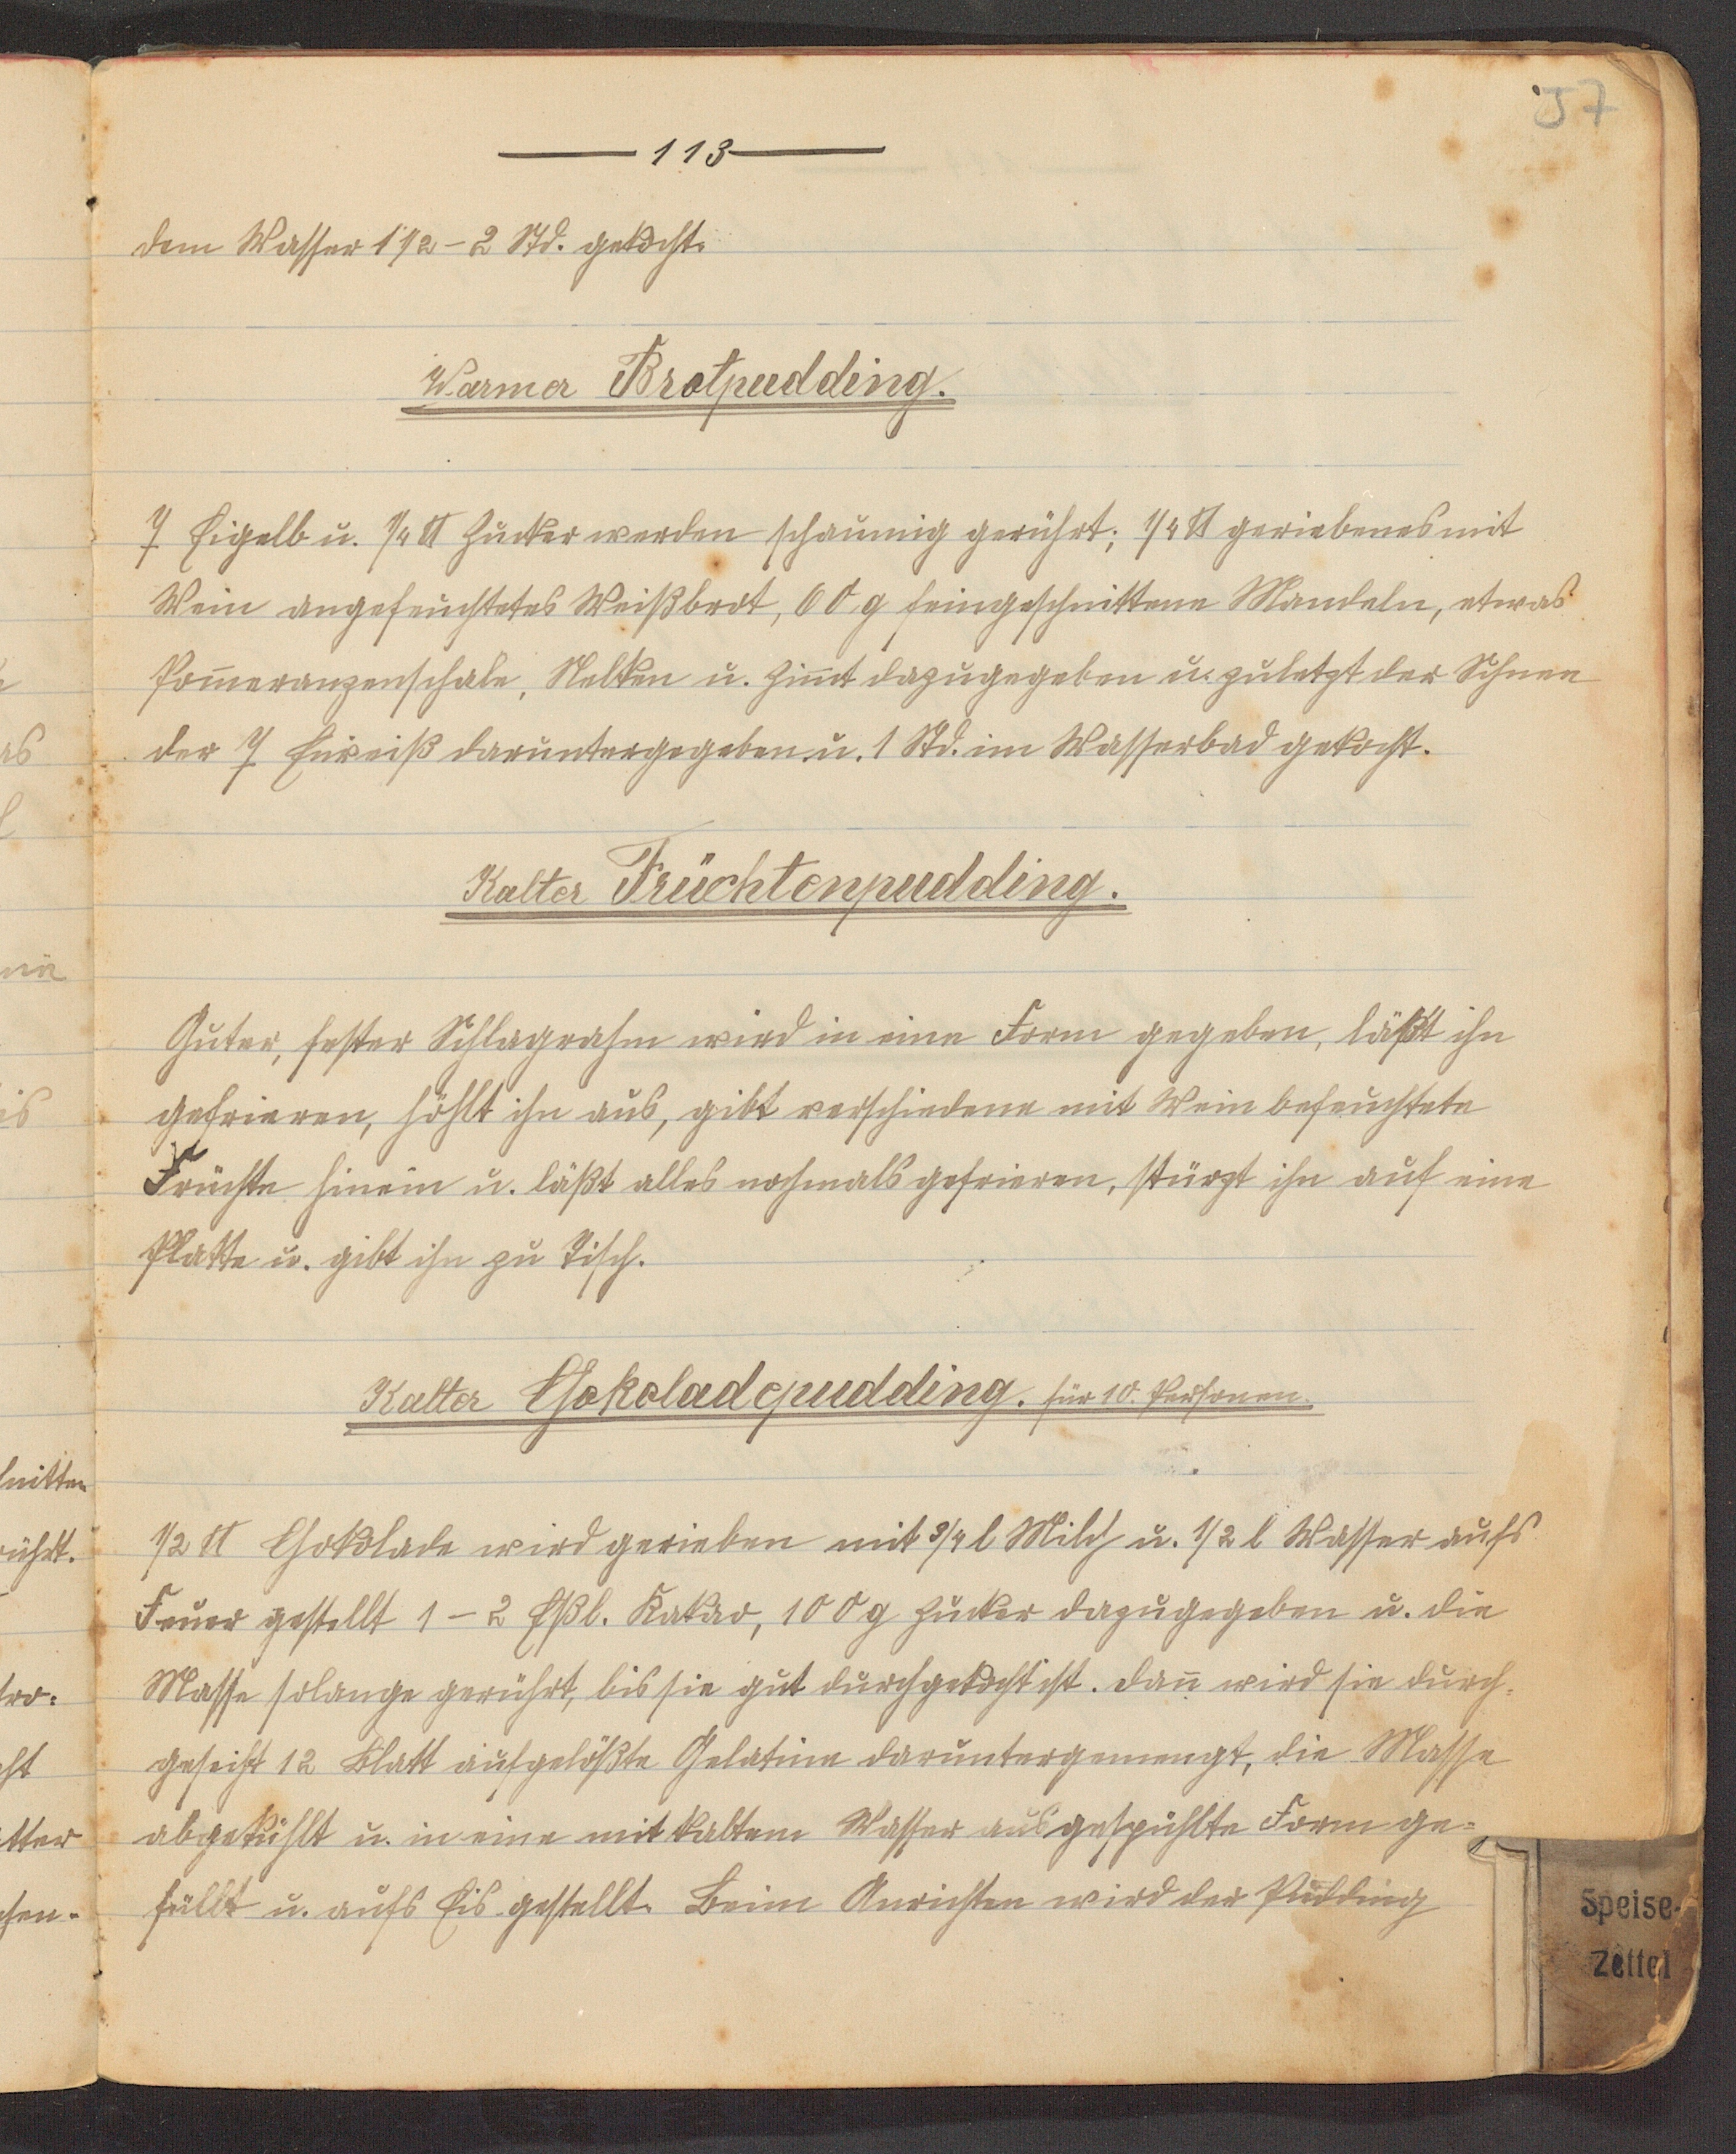 57
113
dem Wasser 1 1/2 – 2 Std. gekocht.
Warmer Brotpudding.
7 Eigelb u. 1/4 ℔ Zucker werden schaumig gerührt; 1/4 ℔ geriebenes mit
Wein angefeuchtetes Weißbrot, 60 g feingeschnittene Mandeln, etwas
Pom̄eranzenschale, Nelken u. Zim̄t dazugegeben u. zuletzt der Schnee
der 7 Eiweiß daruntergegeben u. 1 Std. im Wasserbad gekocht.
Kalter Früchtenpudding.
Guter, fester Schlagrahm wird in eine Form gegeben, läßt ihn
gefrieren, höhlt ihn aus, gibt verschiedene mit Wein befeuchtete
Früchte hinein u. läßt alles nochmals gefrieren, stürzt ihn auf eine
Platte u. gibt ihn zu Tisch.
Kalter Chokoladepudding. für 10. Personen.
1/2 ℔ Chokolade wird gerieben mit 3/4 l Milch u. 1/2 l Wasser aufs
Feuer gestellt 1 – 2 Eßl. Kakao, 100 g Zucker dazugegeben u. die
Masse solange gerührt, bis sie gut durchgekocht ist. Dan̄ wird sie durch-
geseiht 12 Blatt aufgelößte Gelatine daruntergemengt, die Masse
abgekühlt u. in eine mit kaltem Wasser ausgespühlte Form ge=
füllt u. aufs Eis gestellt. Beim Anrichten wird der Pudding
Speise-
Zettel